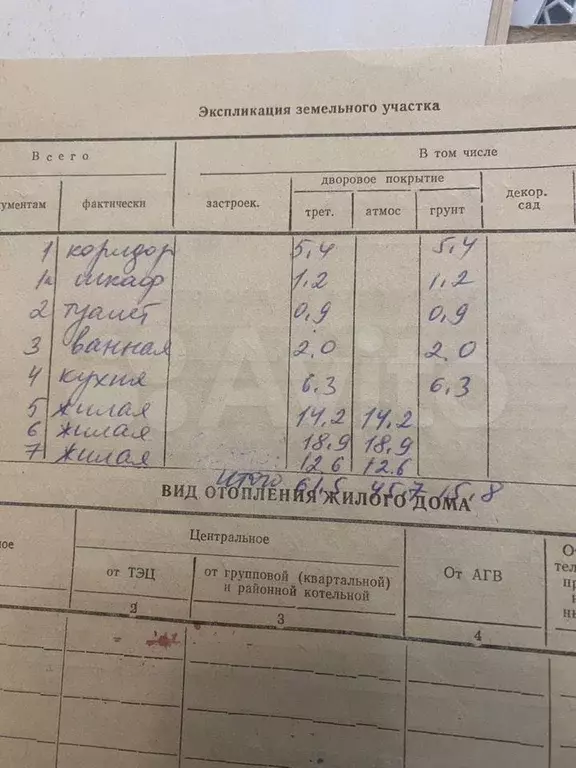 Экспликация земельного участка
Всего
В том числе
дворовое покрытие
ументам фактически застроек. трет. атмос грунт декор. сад
1 коридор 5,4 5,4
1а шкаф 1,2 1,2
2 туалет 0,9 0,9
3 ванная 2.0 2.0
4 кухня 6.3 6.3
5 жилая 14,2 14,2
6 жилая 18,9 18,9
7 жилая 12.6 12.6
итого 61.5 45.7 15.8
ВИД ОТОПЛЕНИЯ ЖИЛОГО ДОМА
Центральное
ное от ТЭЦ от групповой (квартальной) и районной котельной От АГВ
2 3 4
Avito